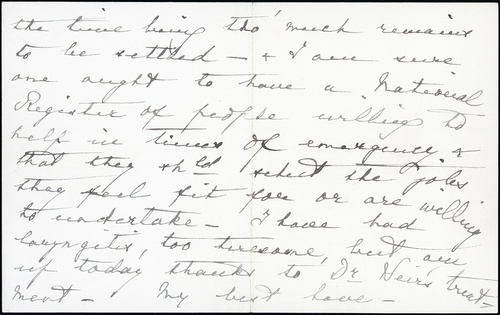 the time being tho' much remains
to be settled — & I am sure
one ought to have a National
Register of people willing to
help in times of emergency &
that they shld select the jobs
they feel fit for or are willing
to undertake — I have had
laryngitis, too tiresome, but am
up today thanks to Dr Weir's treat-
ment — My best love —